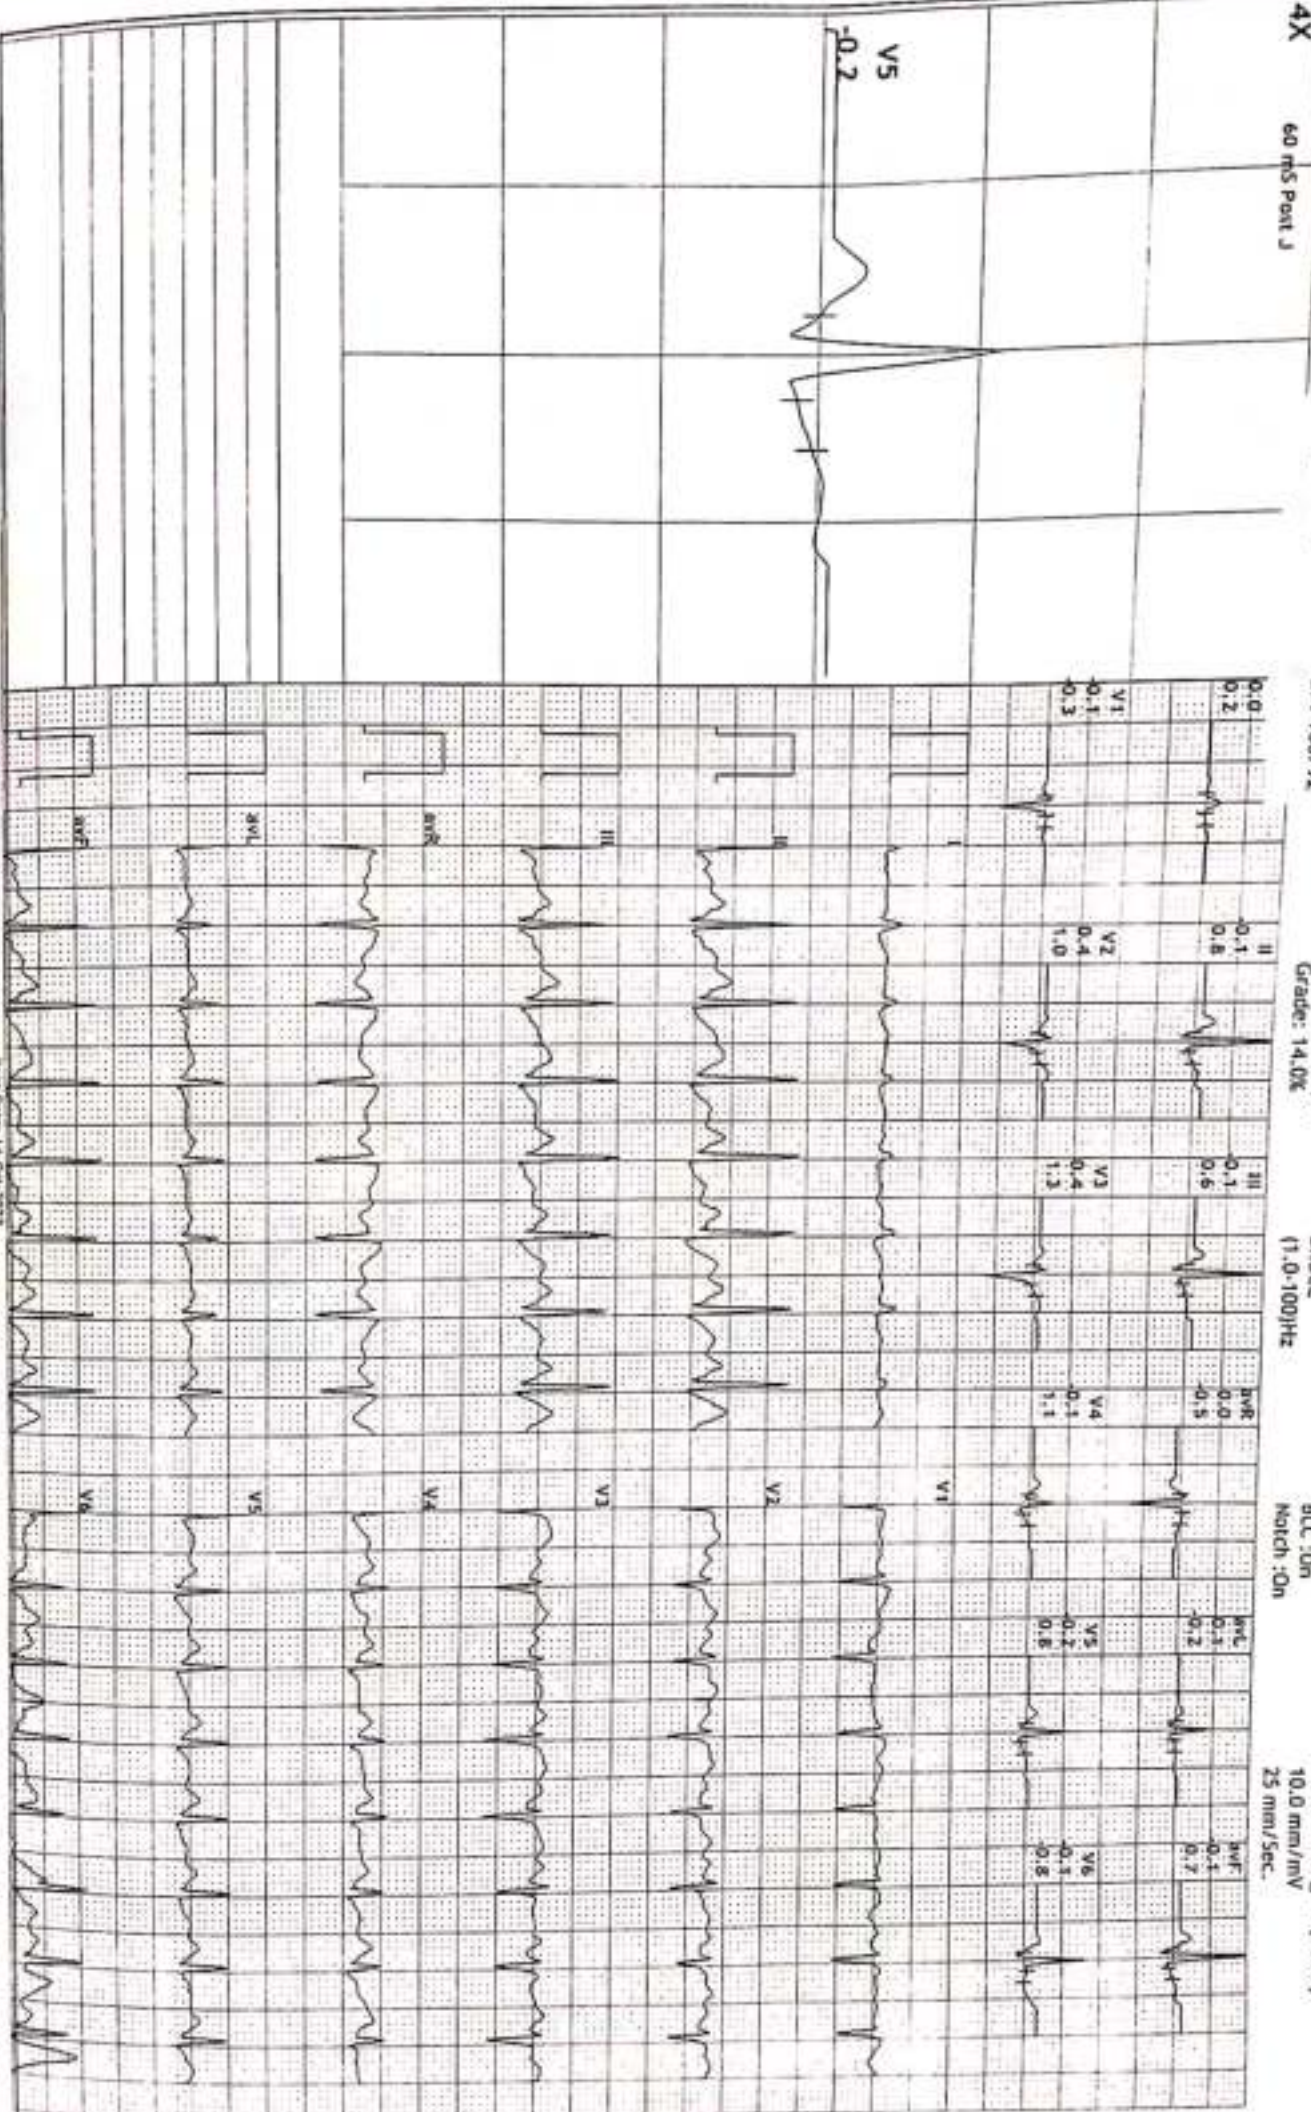 4X
60 mS Post J
V5
-0.2
Grade: 14.0%
(1.0-100)Hz
Notch :On
10.0 mm/mV
25 mm/Sec.
0.0
0.2
II
-0.1
0.8
III
-0.1
0.6
avR
0.0
-0.5
avL
0.1
-0.2
avF
-0.1
0.7
V1
-0.1
-0.3
V2
0.4
1.0
V3
0.4
1.3
V4
-0.1
1.1
V5
-0.2
0.8
V6
-0.1
-0.8
I
V1
II
V2
III
V3
avR
V4
avL
V5
avF
V6